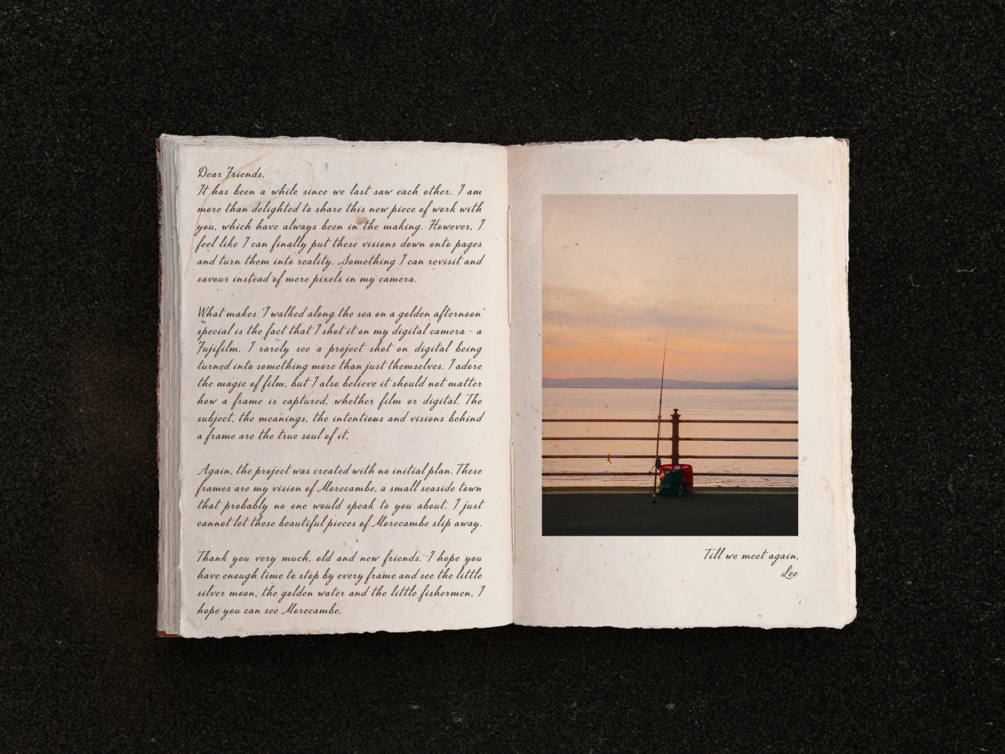 Dear Friends,
It has been a while since we last saw each other. I am
more than delighted to share this new piece of work with
you, which have always been in the making. However, I
feel like I can finally put these visions down onto pages
and turn them into reality. Something I can revisit and
savour instead of mere pixels in my camera.
What makes 'I walked along the sea on a golden afternoon'
special is the fact that I shot it on my digital camera - a
Fujifilm. I rarely see a project shot on digital being
turned into something more than just themselves. I adore
the magic of film, but I also believe it should not matter
how a frame is captured, whether film or digital. The
subject, the meanings, the intentions and visions behind
a frame are the true soul of it.
Again, the project was created with no initial plan. These
frames are my vision of Morecambe, a small seaside town
that probably no one would speak to you about. I just
cannot let these beautiful pieces of Morecambe slip away.
Thank you very much, old and new friends. I hope you
have enough time to stop by every frame and see the little
silver moon, the golden water and the little fishermen, I
hope you can see Morecambe.
Till we meet again,
Lee